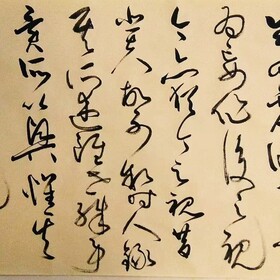 為妄作後之視
今亦猶今之視昔
悲夫故列敘時人錄
其所述雖世殊事
異所以興懷其